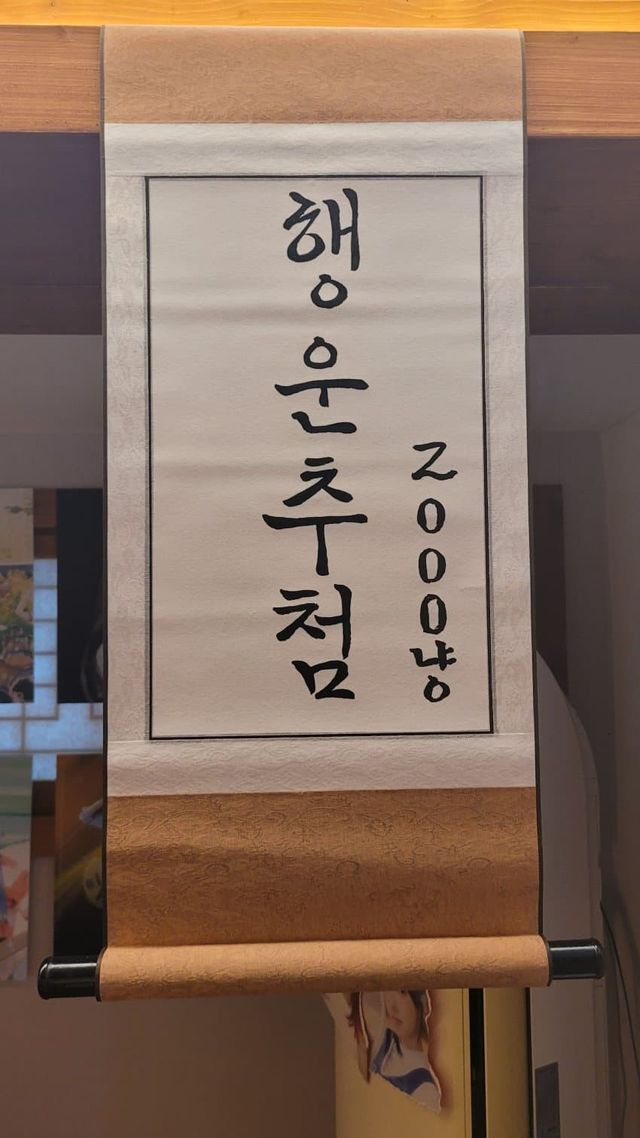 행운추첨
2000냥